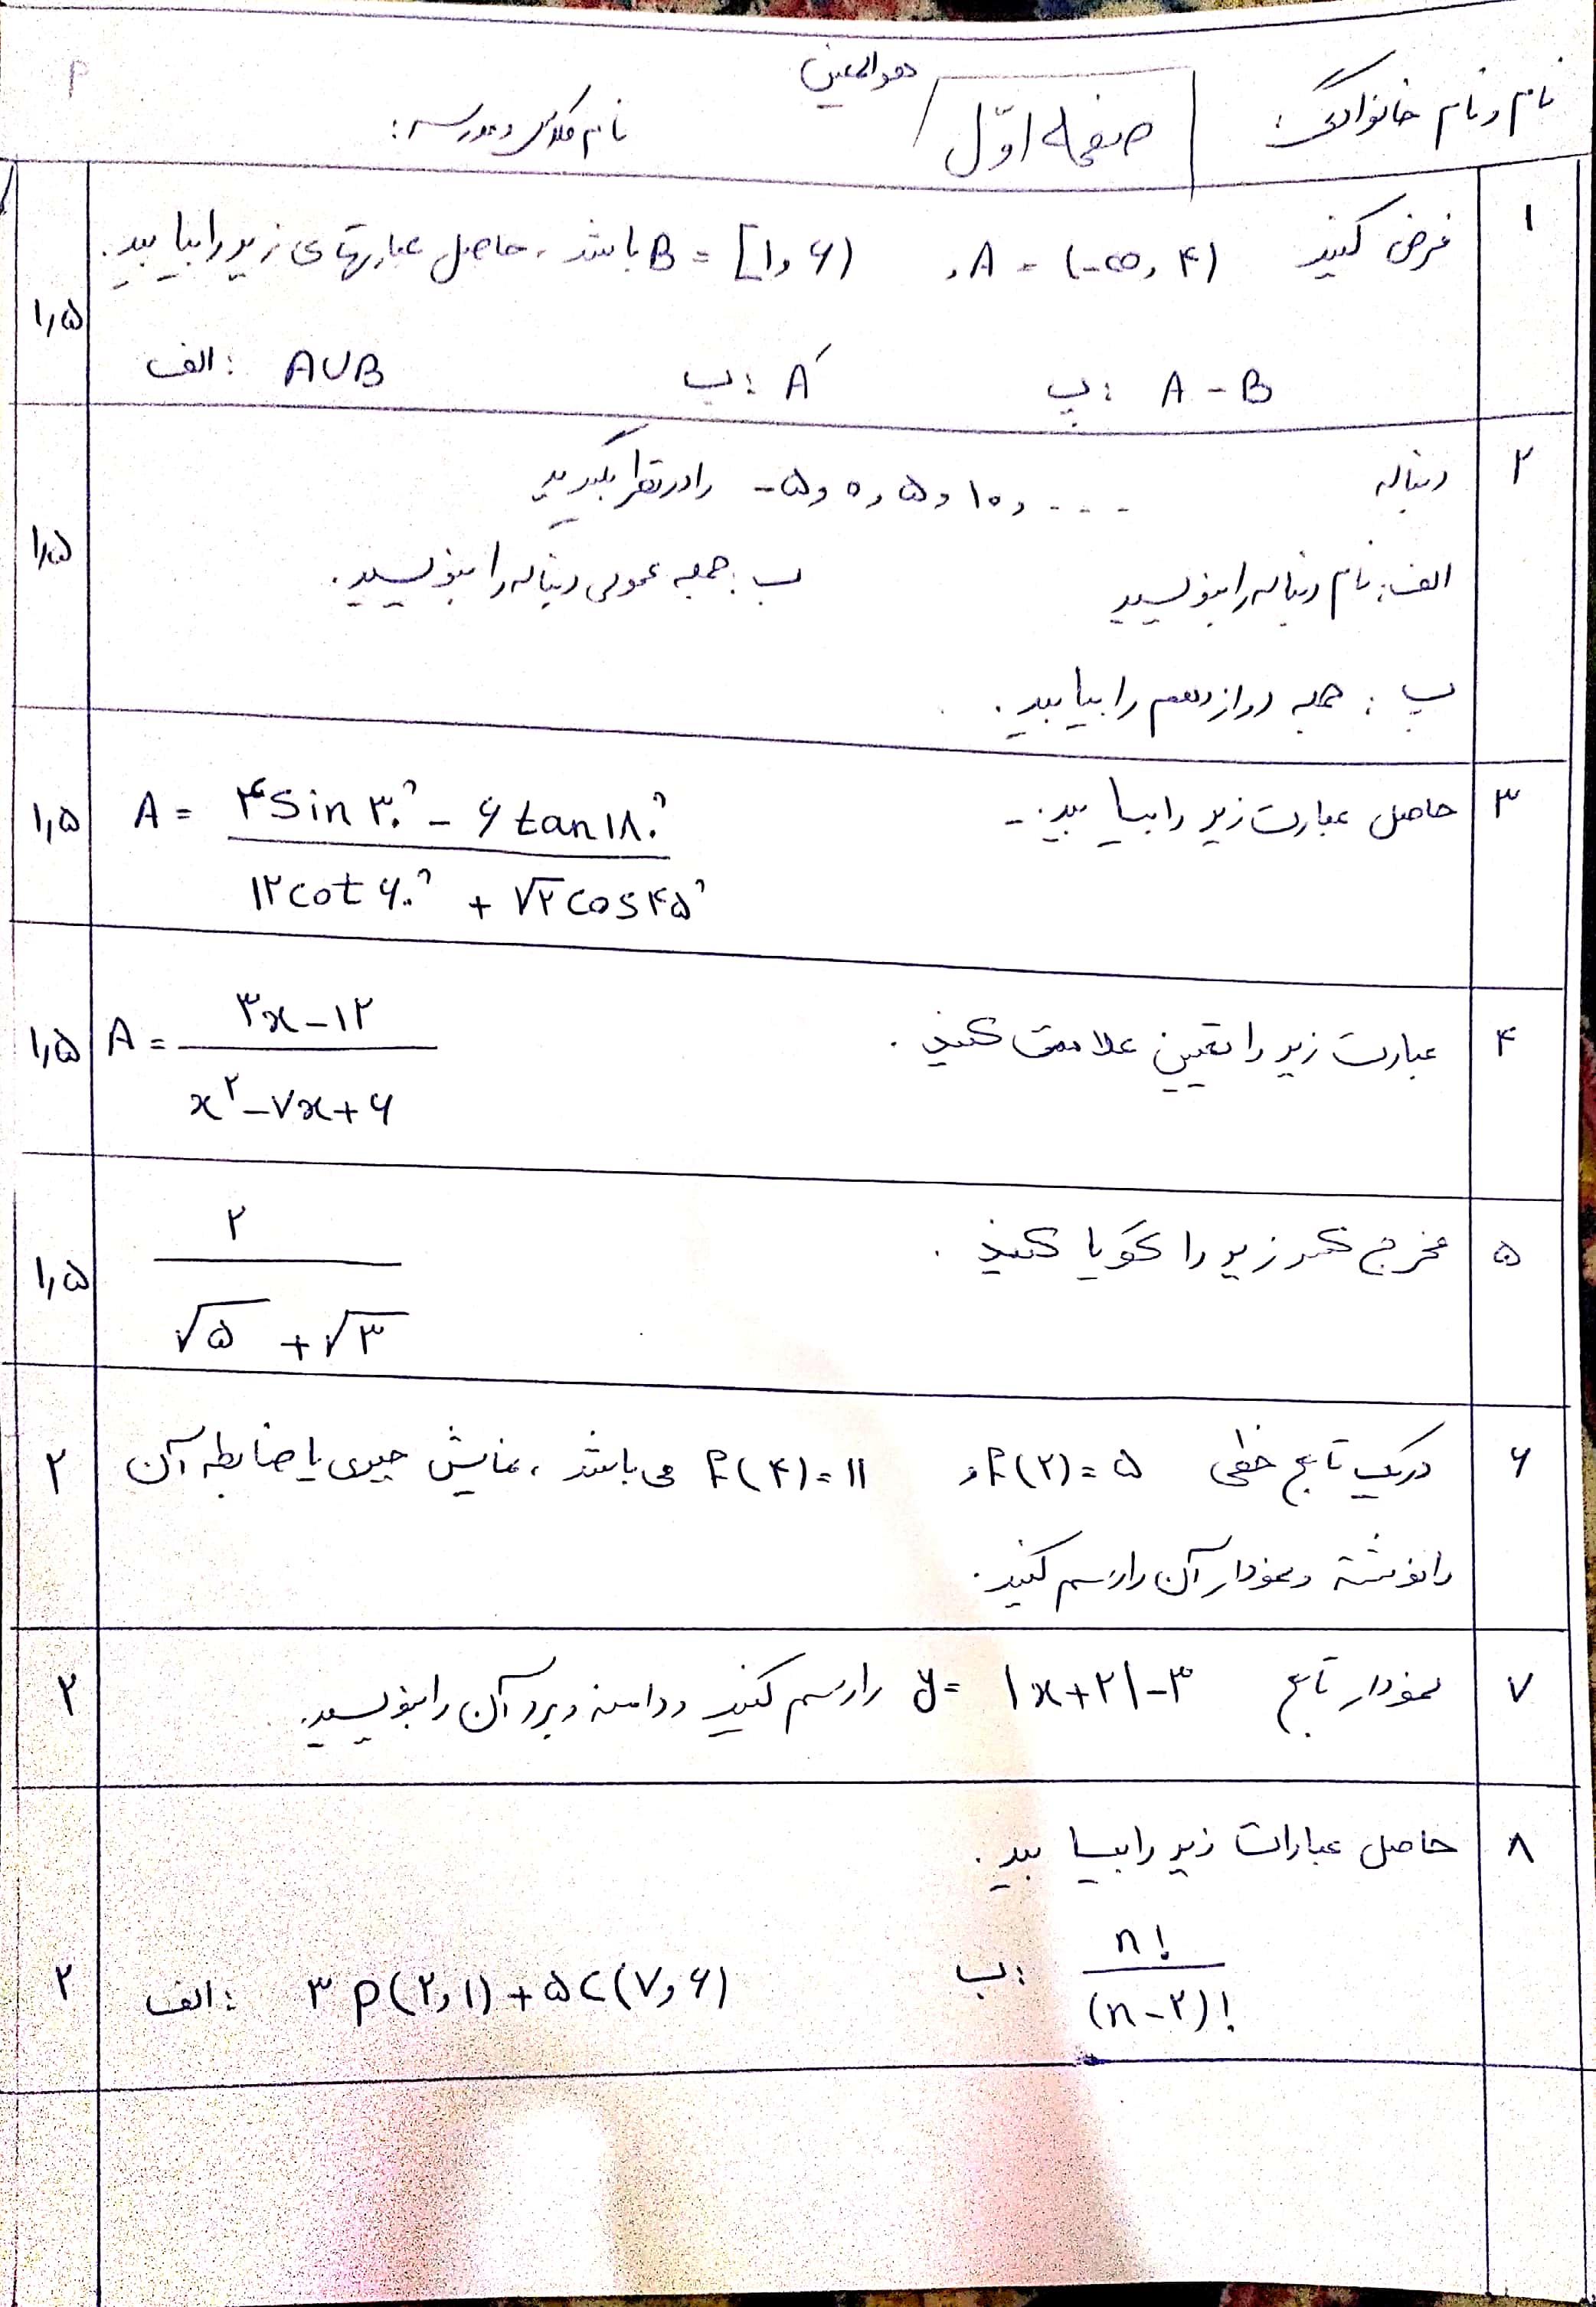 هوالمعین
نام و نام خانوادگی: صفحه اوّل نام کلاس و مدرسه:
۱ فرض کنید A = (-∞, ۴) , B = [۱, ۶) باشد، حاصل عبارتهای زیر را بیابید.
۱٫۵
الف: A∪B ب: A′ پ: A - B
۲ دنباله -۵, ۰, ۵, ۱۰, ... را در نظر بگیرید
۱٫۵
الف: نام دنباله را بنویسید ب: جمله عمومی دنباله را بنویسید.
پ: جمله دوازدهم را بیابید.
۳ حاصل عبارت زیر را بیابید.
۱٫۵ A = (۴ sin ۳۰° - ۶ tan ۱۸۰°) / (۱۲ cot ۶۰° + √۲ cos ۴۵°)
۴ عبارت زیر را تعیین علامت کنید.
۱٫۵ A = (۳x - ۱۲) / (x² - ۷x + ۶)
۵ مخرج کسر زیر را گویا کنید.
۱٫۵ ۲ / (√۵ + √۳)
۶ در یک تابع خطی f(۲) = ۵, f(۴) = ۱۱ می باشد، نمایش جبری یا ضابطه آن
۲
را نوشته و نمودار آن را رسم کنید.
۷ نمودار تابع y = |x+۲| - ۳ را رسم کنید و دامنه و برد آن را بنویسید.
۲
۸ حاصل عبارات زیر را بیابید.
۲ الف: ۳ P(۲,۱) + ۵ C(۷,۶) ب: n! / (n-۲)!